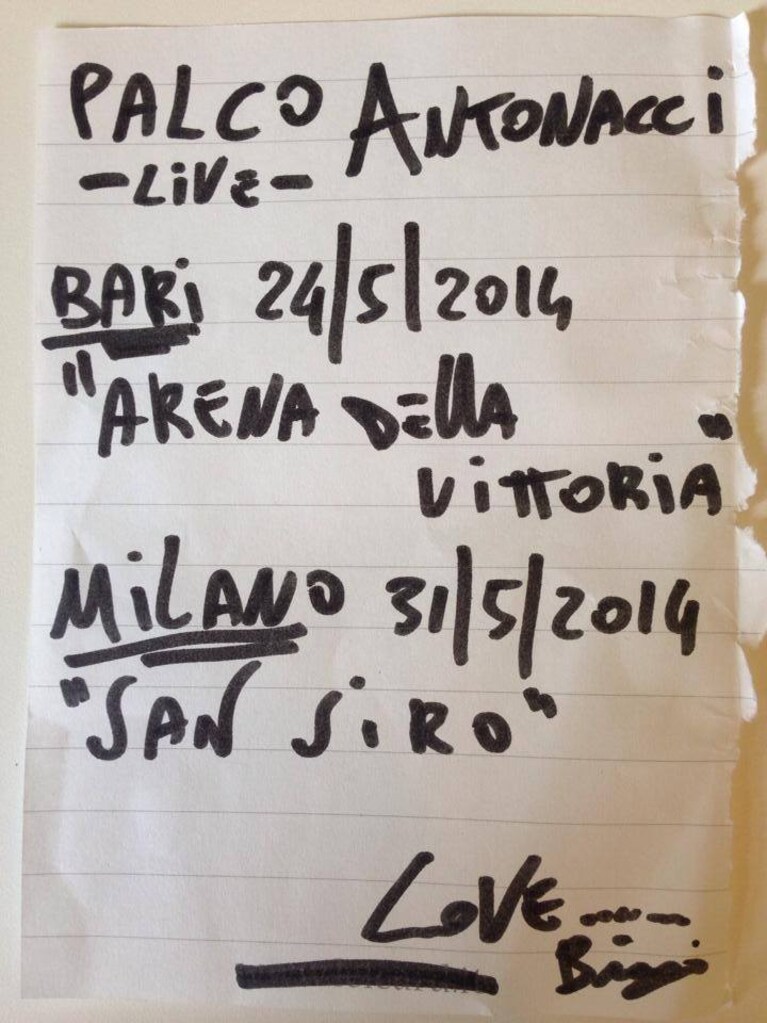 PALCO ANTONACCI
-LiVE-
BARi 24/5/2014
"ARENA DELLA
ViTTORiA"
MiLANO 31/5/2014
"SAN SiRO"
LOVE